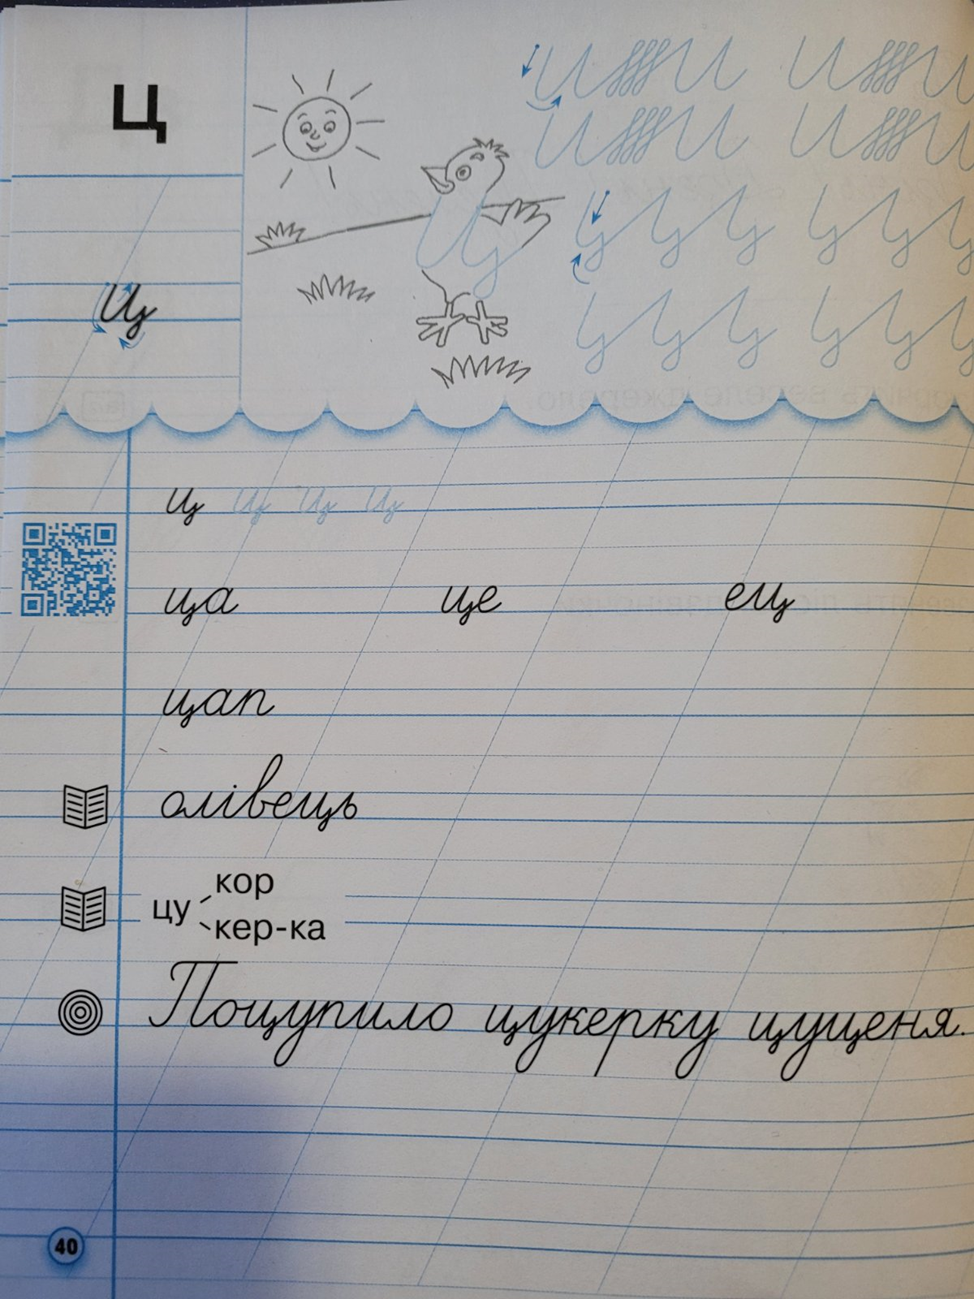 ц
ц
ц ц ц ц
ца це ец
цап
олівець
кор
цу
кер-ка
Поцупило цукерку цуценя.
40